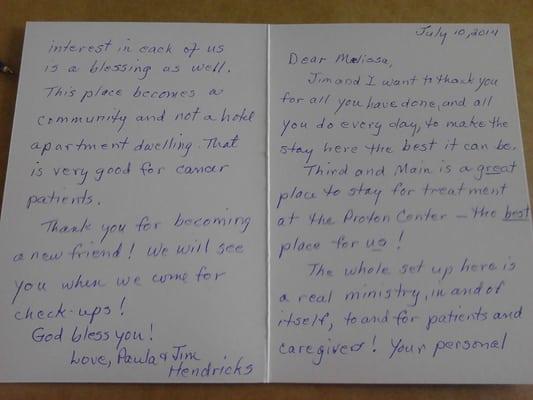 July 10, 2014
Dear Melissa,
Jim and I want to thank you
for all you have done, and all
you do every day, to make the
stay here the best it can be.
Third and Main is a great
place to stay for treatment
at the Proton Center - the best
place for us!
The whole set up here is
a real ministry, in and of
itself, to and for patients and
caregivers! Your personal
interest in each of us
is a blessing as well.
This place becomes a
community and not a hotel
apartment dwelling. That
is very good for cancer
patients.
Thank you for becoming
a new friend! We will see
you when we come for
check-ups!
God bless you!
Love, Paula & Jim
Hendricks